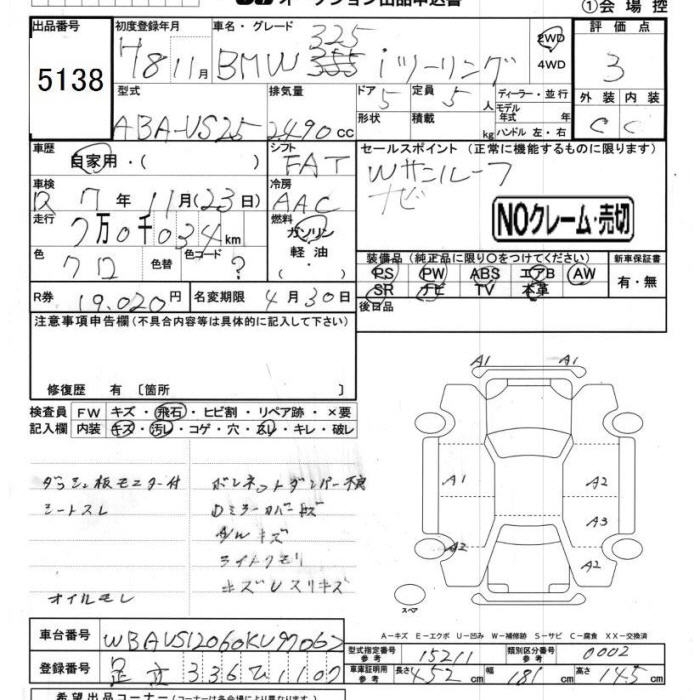 オークション出品申込書
①会場控
出品番号 初度登録年月 車名・グレード 評価点
5138 H18 11月 BMW 325 iツーリング 2WD 4WD 3
型式 排気量 ドア 定員 ディーラー・並行 外装 内装
ABA-VS25 2490cc 5 5人 モデル年式 年 C C
形状 積載 kg ハンドル 左・右
車歴 シフト セールスポイント (正常に機能するものに限ります)
自家用・( ) FAT Wサンルーフ
車検 冷房 ナビ
R 7年 11月(23日) AAC NOクレーム・売切
走行 燃料
7万0千034km ガソリン
軽油
・( )
色 色替 色コード 装備品(純正品に限り○をつけてください) 新車保証書
クロ ? PS PW ABS エアB AW 有・無
SR ナビ TV 本革
R券 19,020円 名変期限 4月30日 後日品
注意事項申告欄(不具合内容等は具体的に記入して下さい)
修復歴 有 〔箇所 〕
検査員 FW キズ・飛石・ヒビ割・リペア跡・×要
記入欄 内装 キズ・汚レ・コゲ・穴・スレ・キレ・破レ
A1 A1
ダッシュ板モニター付 ボンネットダンパー不良
シートスレ Dミラーカバーキズ
A/Wキズ
ライトクモリ
オイルモレ キズUスリキズ
A1 A2
A3
A2 A2
スペア
A-キズ E-エクボ U-凹み W-補修跡 S-サビ C-腐食 XX-交換済
車台番号 型式指定番号 参考 15211 類別区分番号 参考 0002
登録番号 足立 336 車庫証明用 参考 長さ 452cm 幅 181cm 高さ 145cm
希望出品コーナー(コーナーは各会場により異なります)